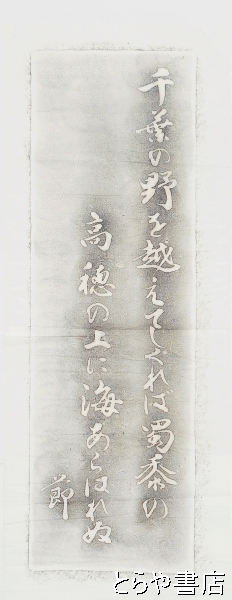 千葉の野を越えてしくれば蜀黍の
高穂の上に海あらはれぬ
節
とらや書店